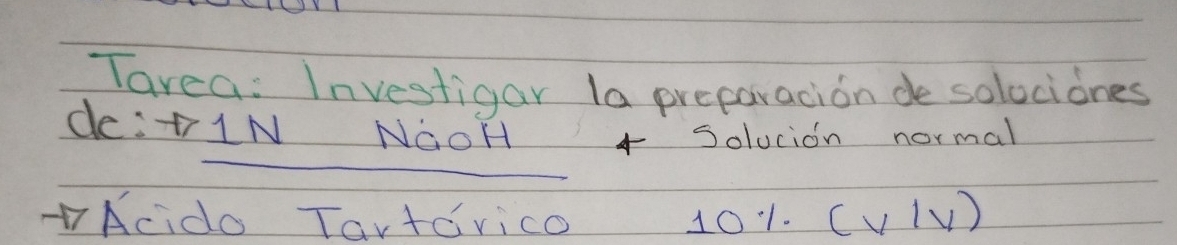 Tarea: Investigar la preparación de soluciónes
de: → 1N NaOH + Solución normal
→ Ácido Tartárico 10% (v/v)